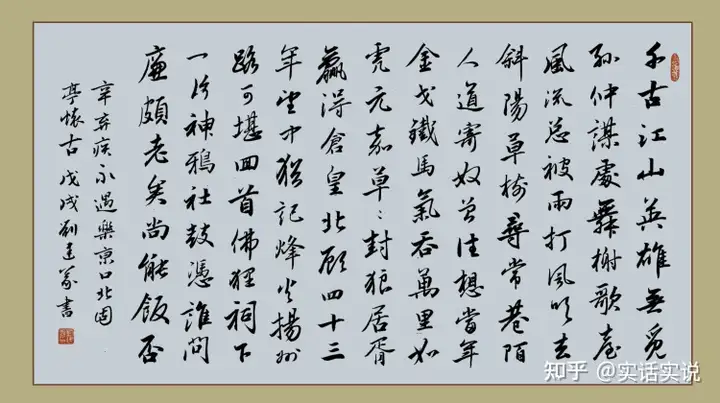 千古江山英雄無覓
孫仲謀處舞榭歌臺
風流總被雨打風吹去
斜陽草樹尋常巷陌
人道寄奴曾住想當年
金戈鐵馬氣吞萬里如
虎元嘉草々封狼居胥
贏得倉皇北顧四十三
年望中猶記烽火揚州
路可堪回首佛狸祠下
一片神鴉社鼓憑誰問
廉頗老矣尚能飯否
辛弃疾永遇樂京口北固
亭懷古 戊戌劉 書
知乎 @实话实说